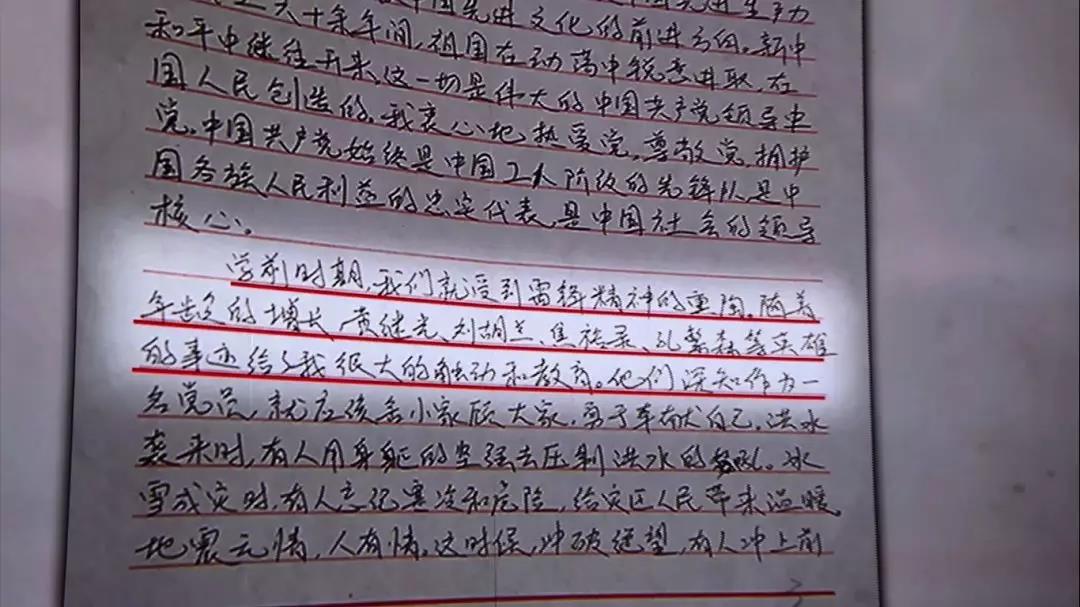 中国先进文化的前进方向。新中
和平中继往开来，这一切是伟大的中国共产党领导中
国人民创造的。我衷心地热爱党，尊敬党，拥护
党。中国共产党始终是中国工人阶级的先锋队是中
国各族人民利益的忠实代表，是中国社会的领导
核心。
学前时期，我们就受到雷锋精神的熏陶。随着
年龄的增长，黄继光、刘胡兰、焦裕录、孔繁森等英雄
的事迹给了我很大的触动和教育。他们深知作为一
名党员，就应该舍小家顾大家，勇于奉献自己，洪水
袭来时，有人用身躯的坚强去压制洪水的怒吼。冰
雪成灾时，有人忘记寒冷和危险，给灾区人民带来温暖。
地震无情，人有情。这时候，冲破绝望，有人冲上前
3